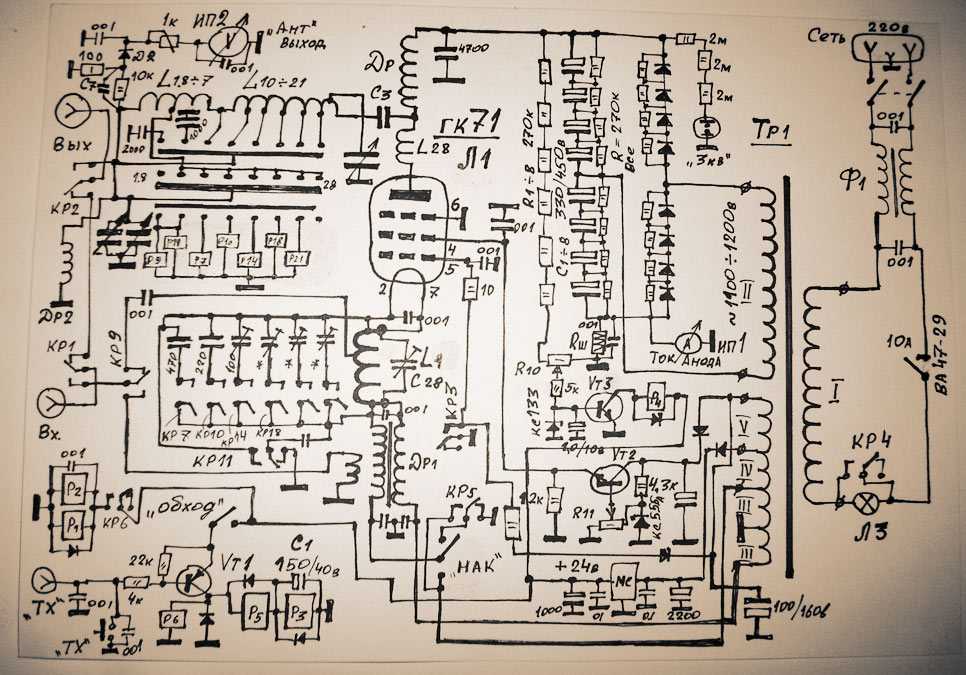 001
1к
ИП2
„Ант"
Выход
V
001
100
ДR
С7
10к
L1.8÷7
L10÷21
1000
2000
Вых
КР2
1.8
28
Др
4700
С3
L28
ГК71
Л1
6
4
5
2
7
001
001
10
001
R1÷8 270к
С1÷8 330/450в
R=270к
Все
2м
2м
2м
„3кв"
Тр1
Сеть
220в
001
Ф1
001
~1900÷1200в
II
I
10А
ВА47-29
КР4
Л3
Р19
Р10
Р18
Р9
Р7
Р14
Р21
Др2
КР1
КР9
001
Вх.
470
220
100
*
*
*
КР7
КР10
КР14
КР18
КР11
L1
С28
001
Др1
КР3
001
Rш
ИП1
Ток/Анода
R10
5к
ке133
VТ3
Р4
2,0/10в
VТ2
R11
4,3к
ке55А
V
IV
III
КР5
„НАК"
+24в
МС
1000
01
01
2200
100/160в
001
Р2
Р1
КР6
„Обход"
22к
VТ1
С1
150/40в
„ТХ"
001
4к
Р6
Р5
Р3
„ТХ"
001